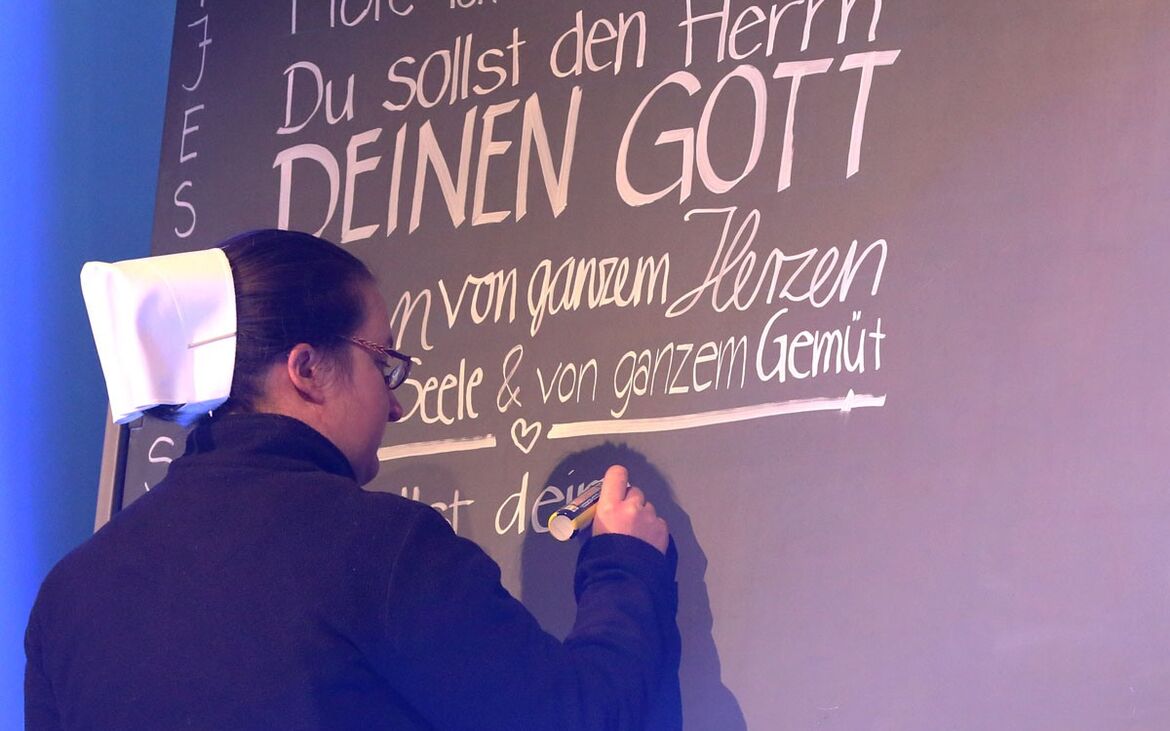 Du sollst den Herrn
DEINEN GOTT
von ganzem Herzen
Seele & von ganzem Gemüt
dein
J
E
S
S